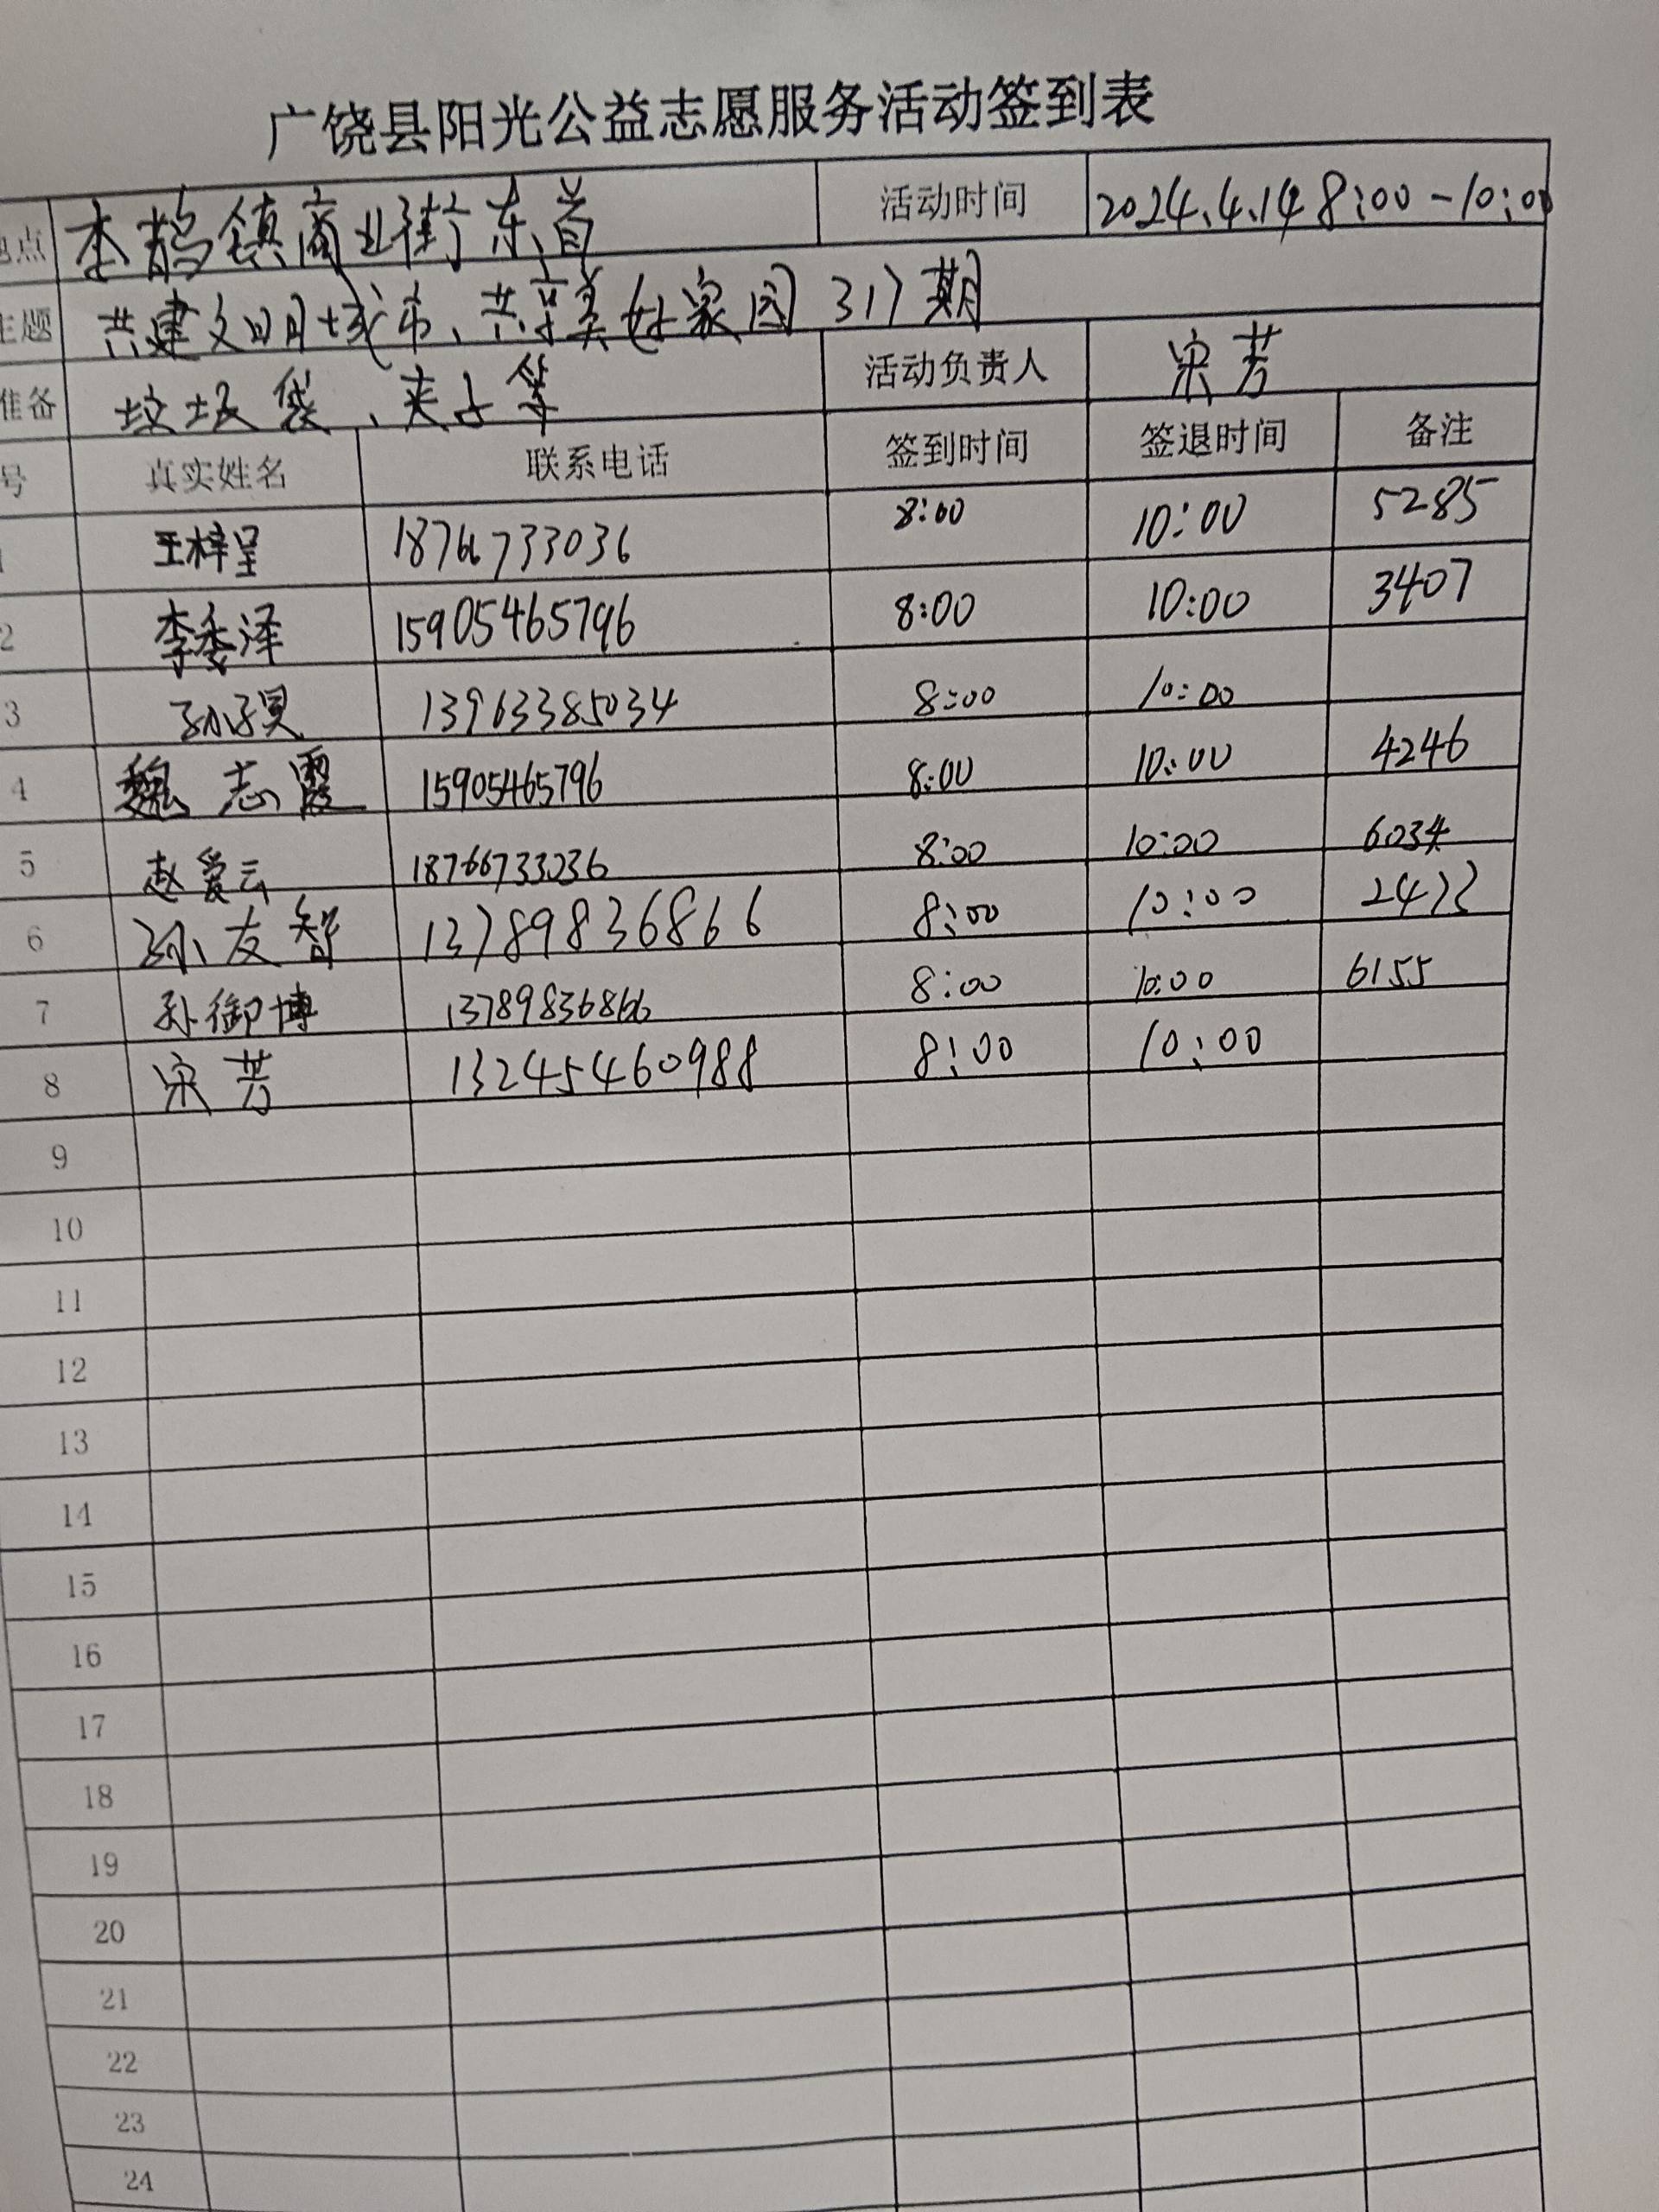 广饶县阳光公益志愿服务活动签到表
地点 李鹊镇商业街东首 活动时间 2024.4.14 8:00-10:00
主题 共建文明城市、共享美好家园317期
准备 垃圾袋、夹子等 活动负责人 宋芳
号 真实姓名 联系电话 签到时间 签退时间 备注
1 王梓呈 18766733036 8:00 10:00 5285
2 李秀泽 15905465796 8:00 10:00 3407
3 13963385034 8:00 10:00
4 魏志霞 15905465796 8:00 10:00 4246
5 赵爱云 18766733036 8:00 10:00 6034
6 孙友智 13789836866 8:00 10:00 2473
7 孙御博 13789836866 8:00 10:00 6155
8 宋芳 13245460988 8:00 10:00
9
10
11
12
13
14
15
16
17
18
19
20
21
22
23
24